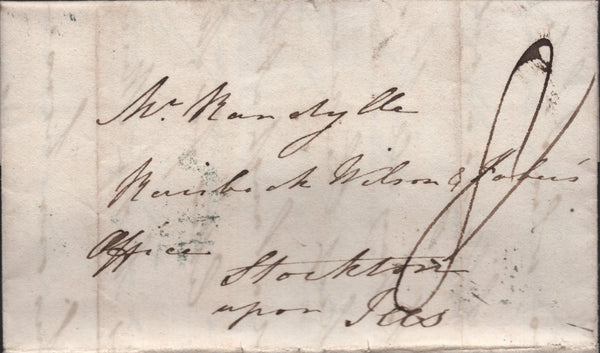 Mr. Randylle
Raisbeck Wilson & Faber's
Office
Stockton
upon Tees
8